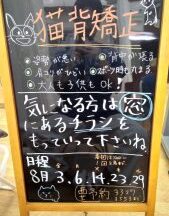 猫背矯正
姿勢が悪い
背中が張る
肩コリがひどい
スポーツ時丸まる
大人も子供もOK!
気になる方は窓
にあるチラシを
もっていって下さいね。
日程
8月3.6.14.23.29
要予約